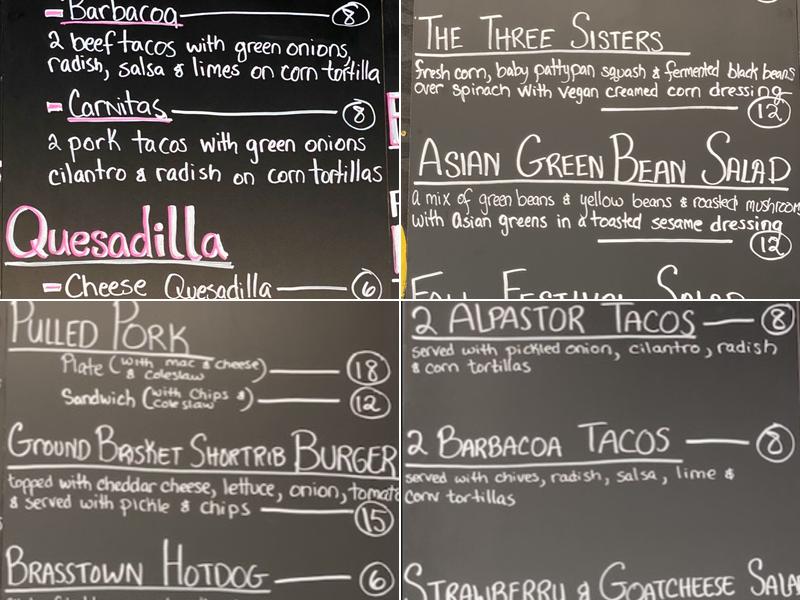 - Barbacoa 8
2 beef tacos with green onions,
radish, salsa & limes on corn tortilla
- Carnitas 8
2 pork tacos with green onions
cilantro & radish on corn tortillas
Quesadilla
- Cheese Quesadilla 6
THE THREE SISTERS
fresh corn, baby pattypan squash & fermented black beans
over spinach with vegan creamed corn dressing
12
ASIAN GREEN BEAN SALAD
a mix of green beans & yellow beans & roasted mushroom
with asian greens in a toasted sesame dressing
12
FALL FESTIVAL SALAD
PULLED PORK
Plate (with mac & cheese & coleslaw) 18
Sandwich (with chips & cole slaw) 12
GROUND BRISKET SHORTRIB BURGER
topped with cheddar cheese, lettuce, onion, tomato
& served with pickle & chips
15
BRASSTOWN HOTDOG 6
2 ALPASTOR TACOS 8
served with pickled onion, cilantro, radish
& corn tortillas
2 BARBACOA TACOS 8
served with chives, radish, salsa, lime &
corn tortillas
STRAWBERRY & GOATCHEESE SALA